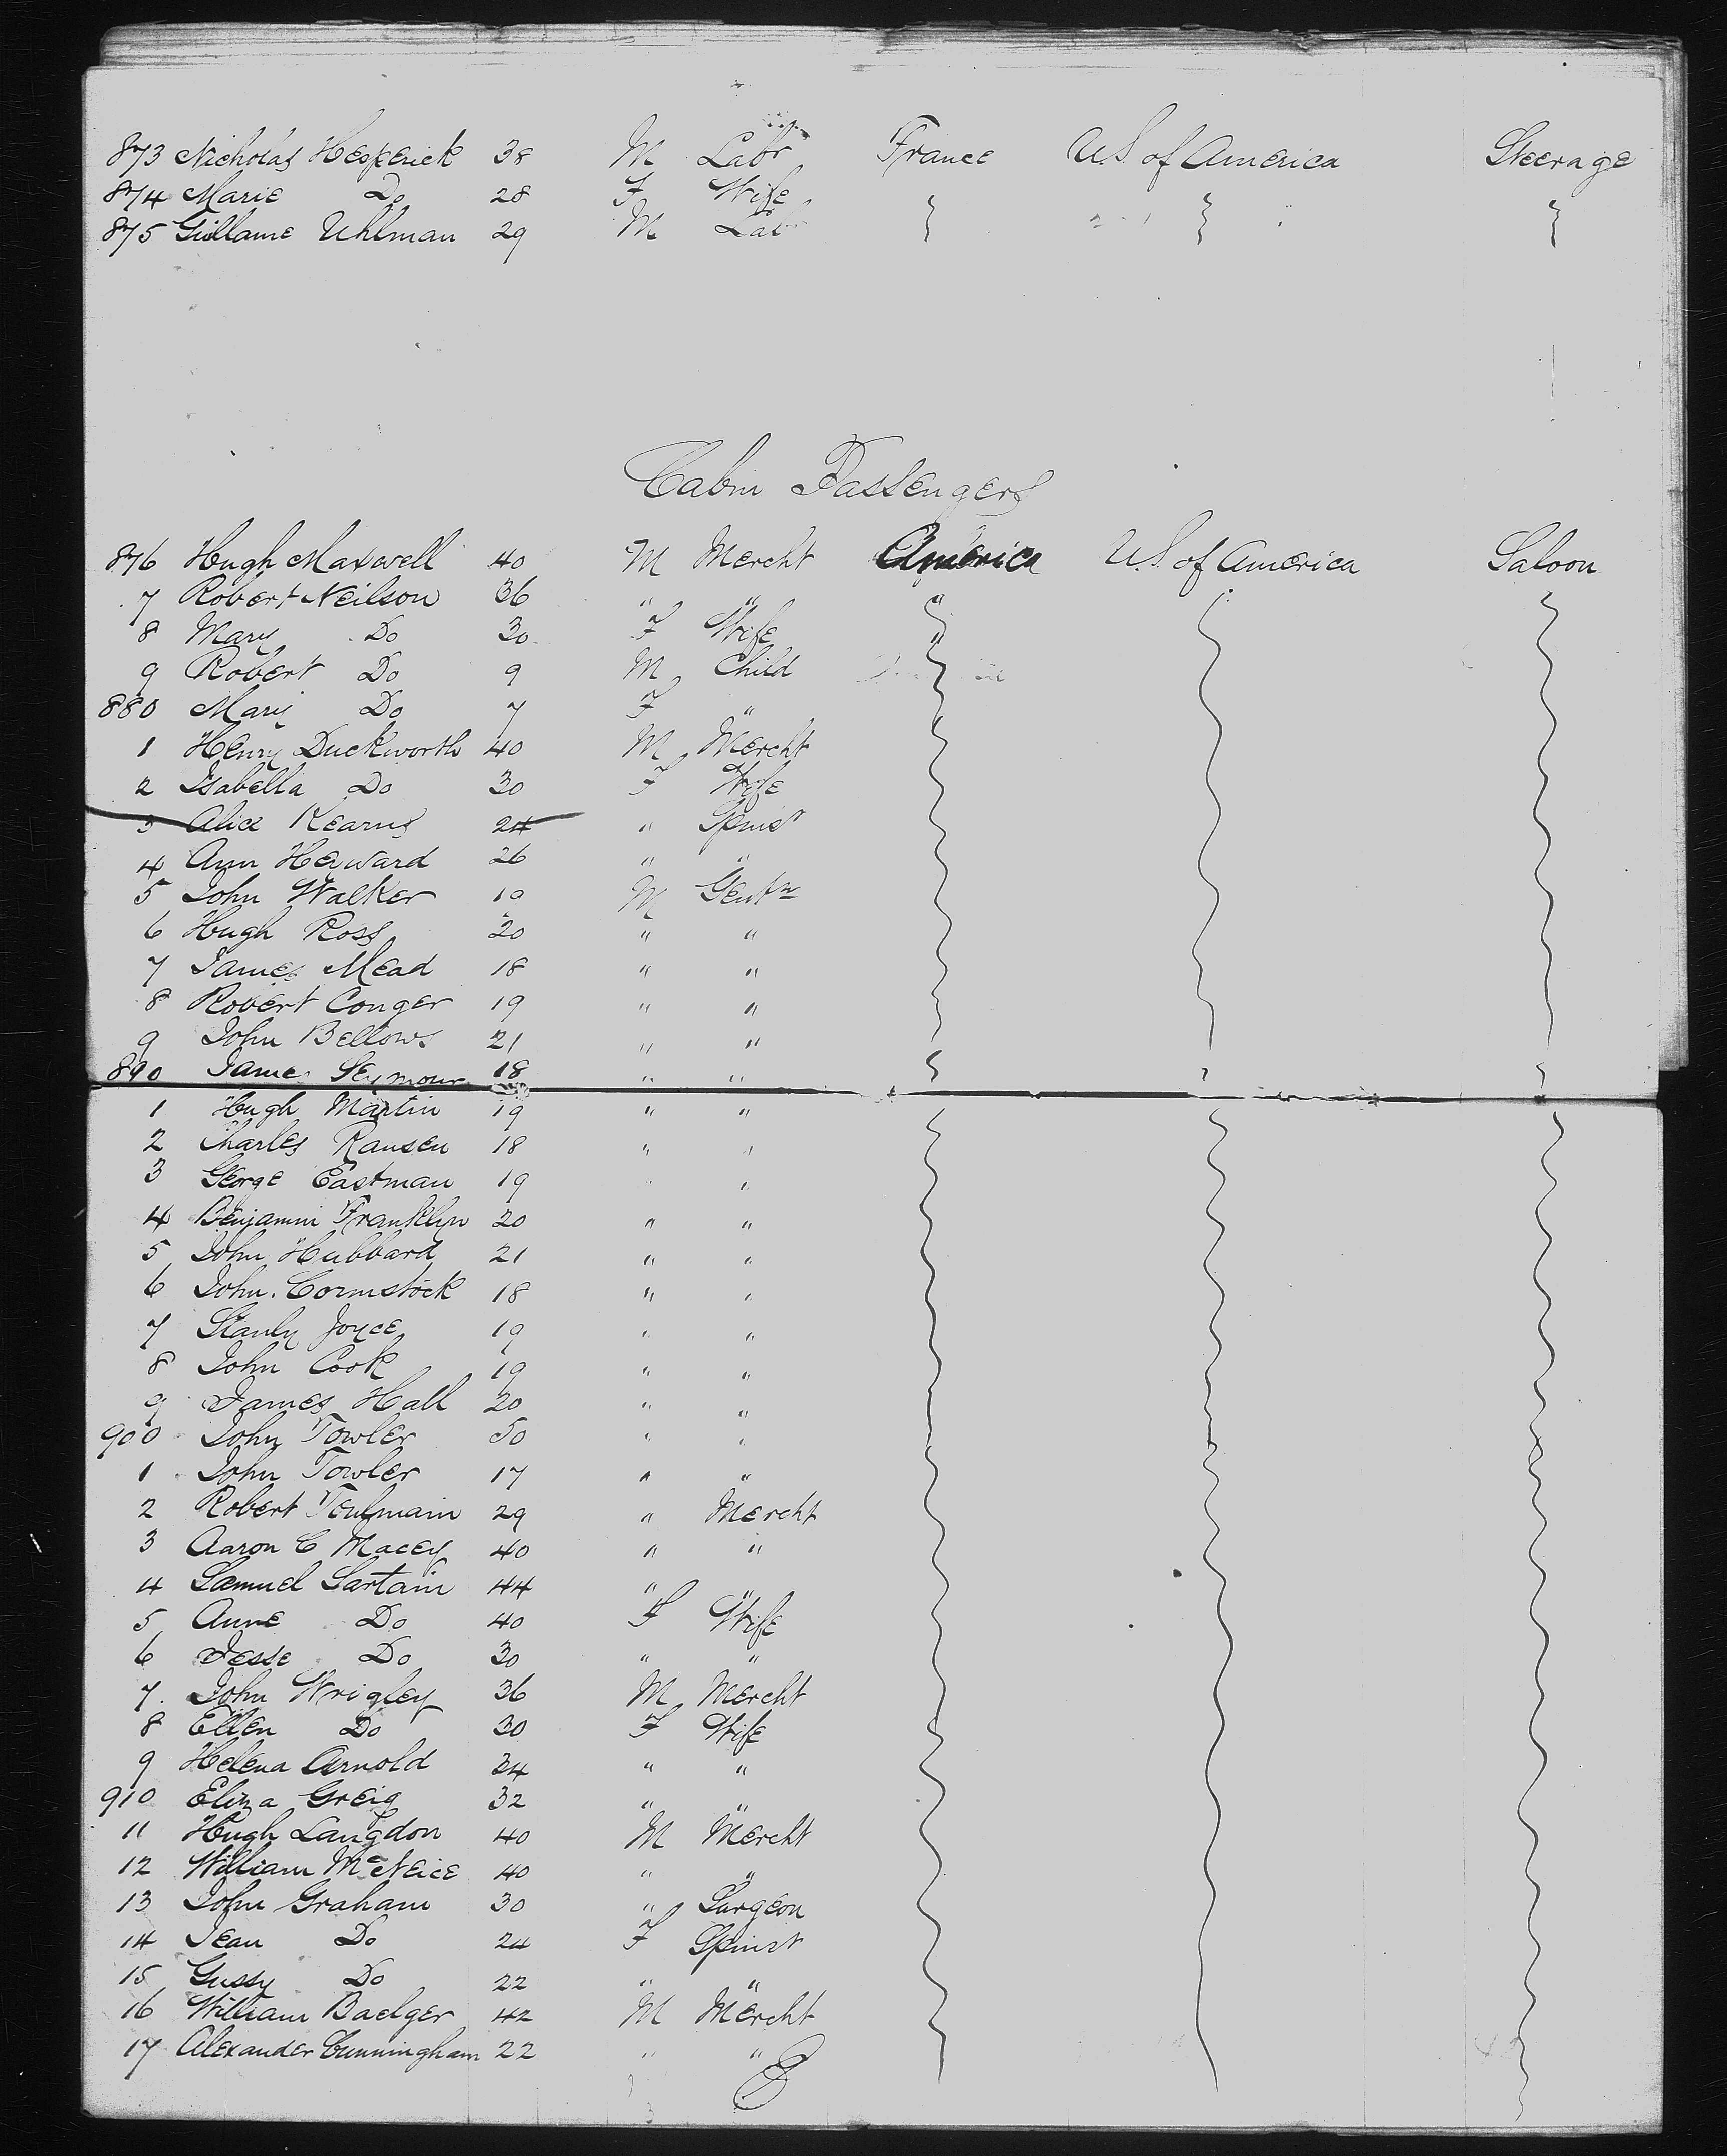 873 Nicholas Hesperick 38 M Labr France U.S. of America Steerage
874 Marie Do 28 F Wife
875 Gillame Uhlman 29 M Labr
Cabin Passengers
876 Hugh Maxwell 40 M Mercht America U.S. of America Saloon
7 Robert Neilson 36 " " "
8 Mary Do 30 F Wife "
9 Robert Do 9 M Child
880 Mary Do 7 F "
1 Henry Duckworth 40 M Mercht
2 Isabella Do 30 F Wife
3 Alice Kearns 24 " Spinst
4 Ann Heyward 26 " "
5 John Walker 19 M Gentn
6 Hugh Ross 20 " "
7 James Mead 18 " "
8 Robert Conger 19 " "
9 John Bellows 21 " "
890 James Seymour 18 " "
1 Hugh Martin 19 " "
2 Charles Ransen 18 " "
3 George Eastman 19 "
4 Benjamin Franklyn 20 " "
5 John Hubbard 21 " "
6 John Cormstock 18 " "
7 Stanly Joyce 19 " "
8 John Cook 19 " "
9 James Hall 20 " "
900 John Towler 50 " "
1 John Towler 17 " "
2 Robert 29 " Mercht
3 Aaron C Macey 40 " "
4 Samuel Sartain 44 " "
5 Anne Do 40 F Wife
6 Jesse Do 30 " "
7 John Wrigley 36 M Mercht
8 Ellen Do 30 F Wife
9 Helena Arnold 34 " "
910 Eliza Greig 32 " "
11 Hugh Langdon 40 M Mercht
12 William McNeice 40 " "
13 John Graham 30 " Surgeon
14 Jean Do 24 F Spinst
15 Gussy Do 22 " "
16 William Baelger 42 M Mercht
17 Alexander Cunningham 22 " "